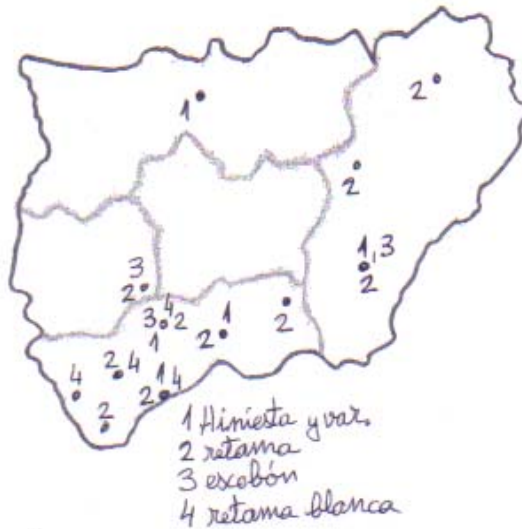 2
1
2
1, 3
2
3
2
4
3 2
1
1
2
2
2 4
4
1 4
2
2
1 Hiniesta y var.
2 retama
3 escobón
4 retama blanca